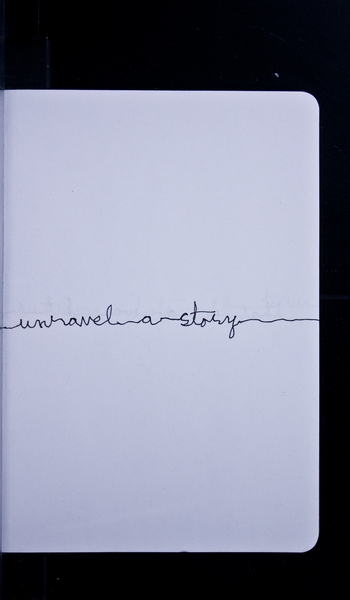 unravel a story